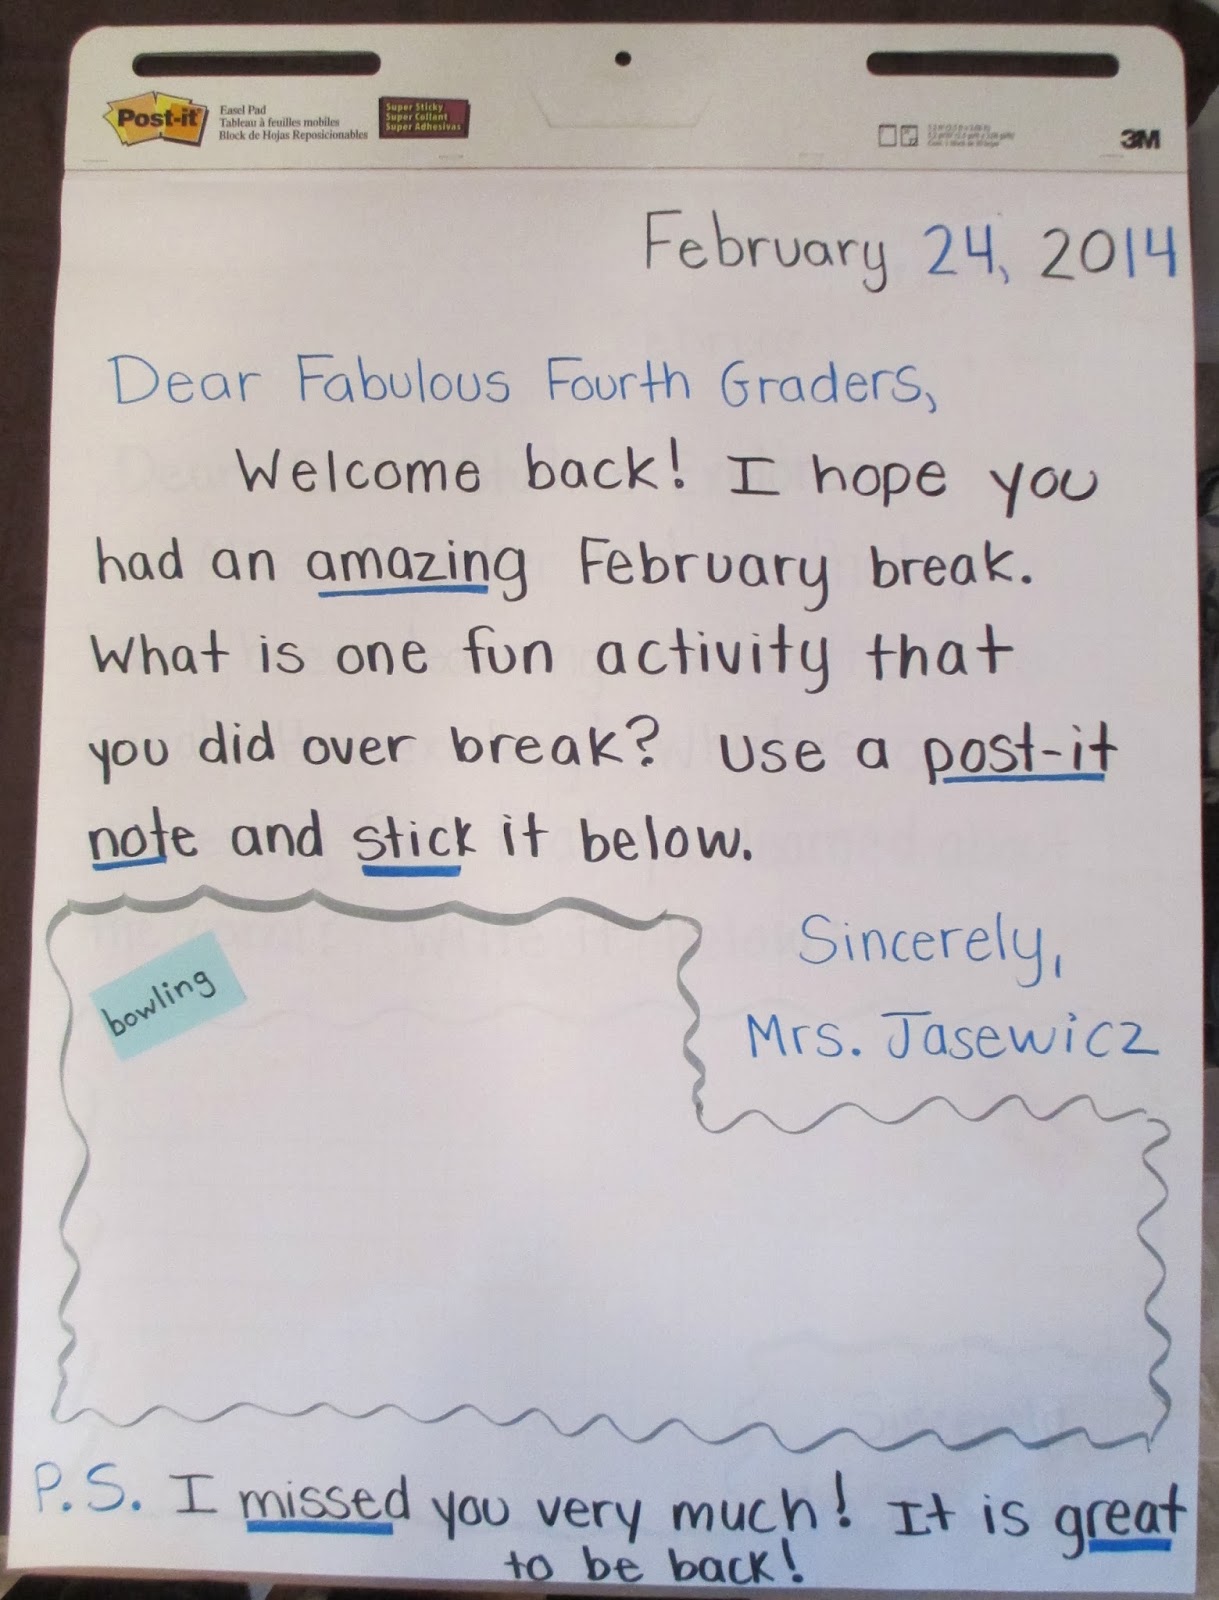 Post-it
Easel Pad
Tableau à feuilles mobiles
Block de Hojas Reposicionables
Super Sticky
Super Collant
Super Adhesivas
3M
February 24, 2014
Dear Fabulous Fourth Graders,
Welcome back! I hope you
had an amazing February break.
What is one fun activity that
you did over break? Use a post-it
note and stick it below.
bowling
Sincerely,
Mrs. Jasewicz
P.S. I missed you very much! It is great
to be back!